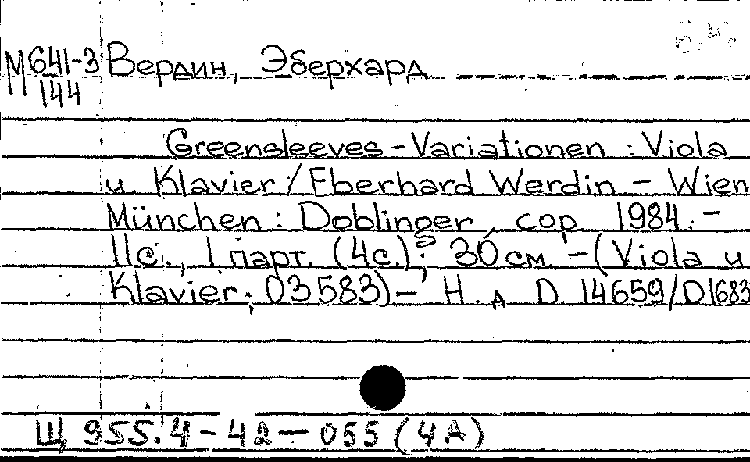 М641-3 Вердин, Эберхард
144
Greensleeves-Variationen : Viola
u Klavier / Eberhard Werdin - Wien
München : Doblinger, cop 1984. -
11с., 1 парт. (4с.); 30 см - (Viola u
Klavier; 03583) - Н. Д. D 14659/D1683
Щ 955.4-42-055 (4А)